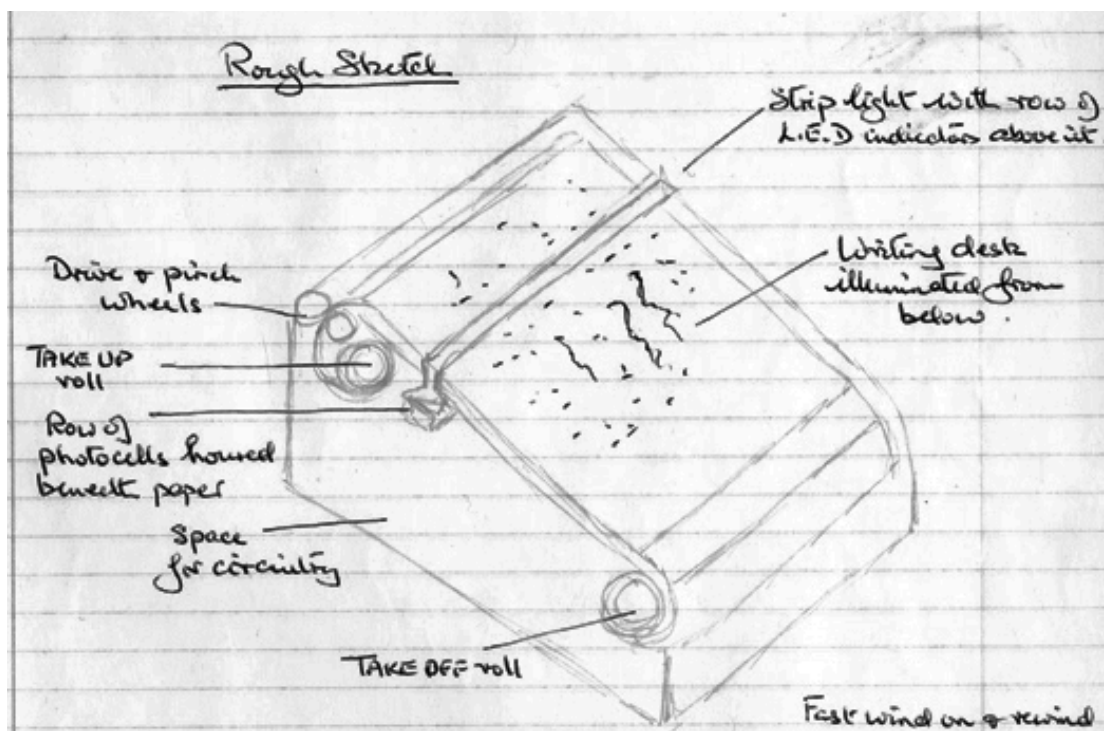 Rough Sketch
Strip light with row of
L.E.D indicators above it
Writing desk
illuminated from
below.
Drive & pinch
wheels
TAKE UP
roll
Row of
photocells housed
beneath paper
Space
for circuitry
TAKE OFF roll
Fast wind on & rewind